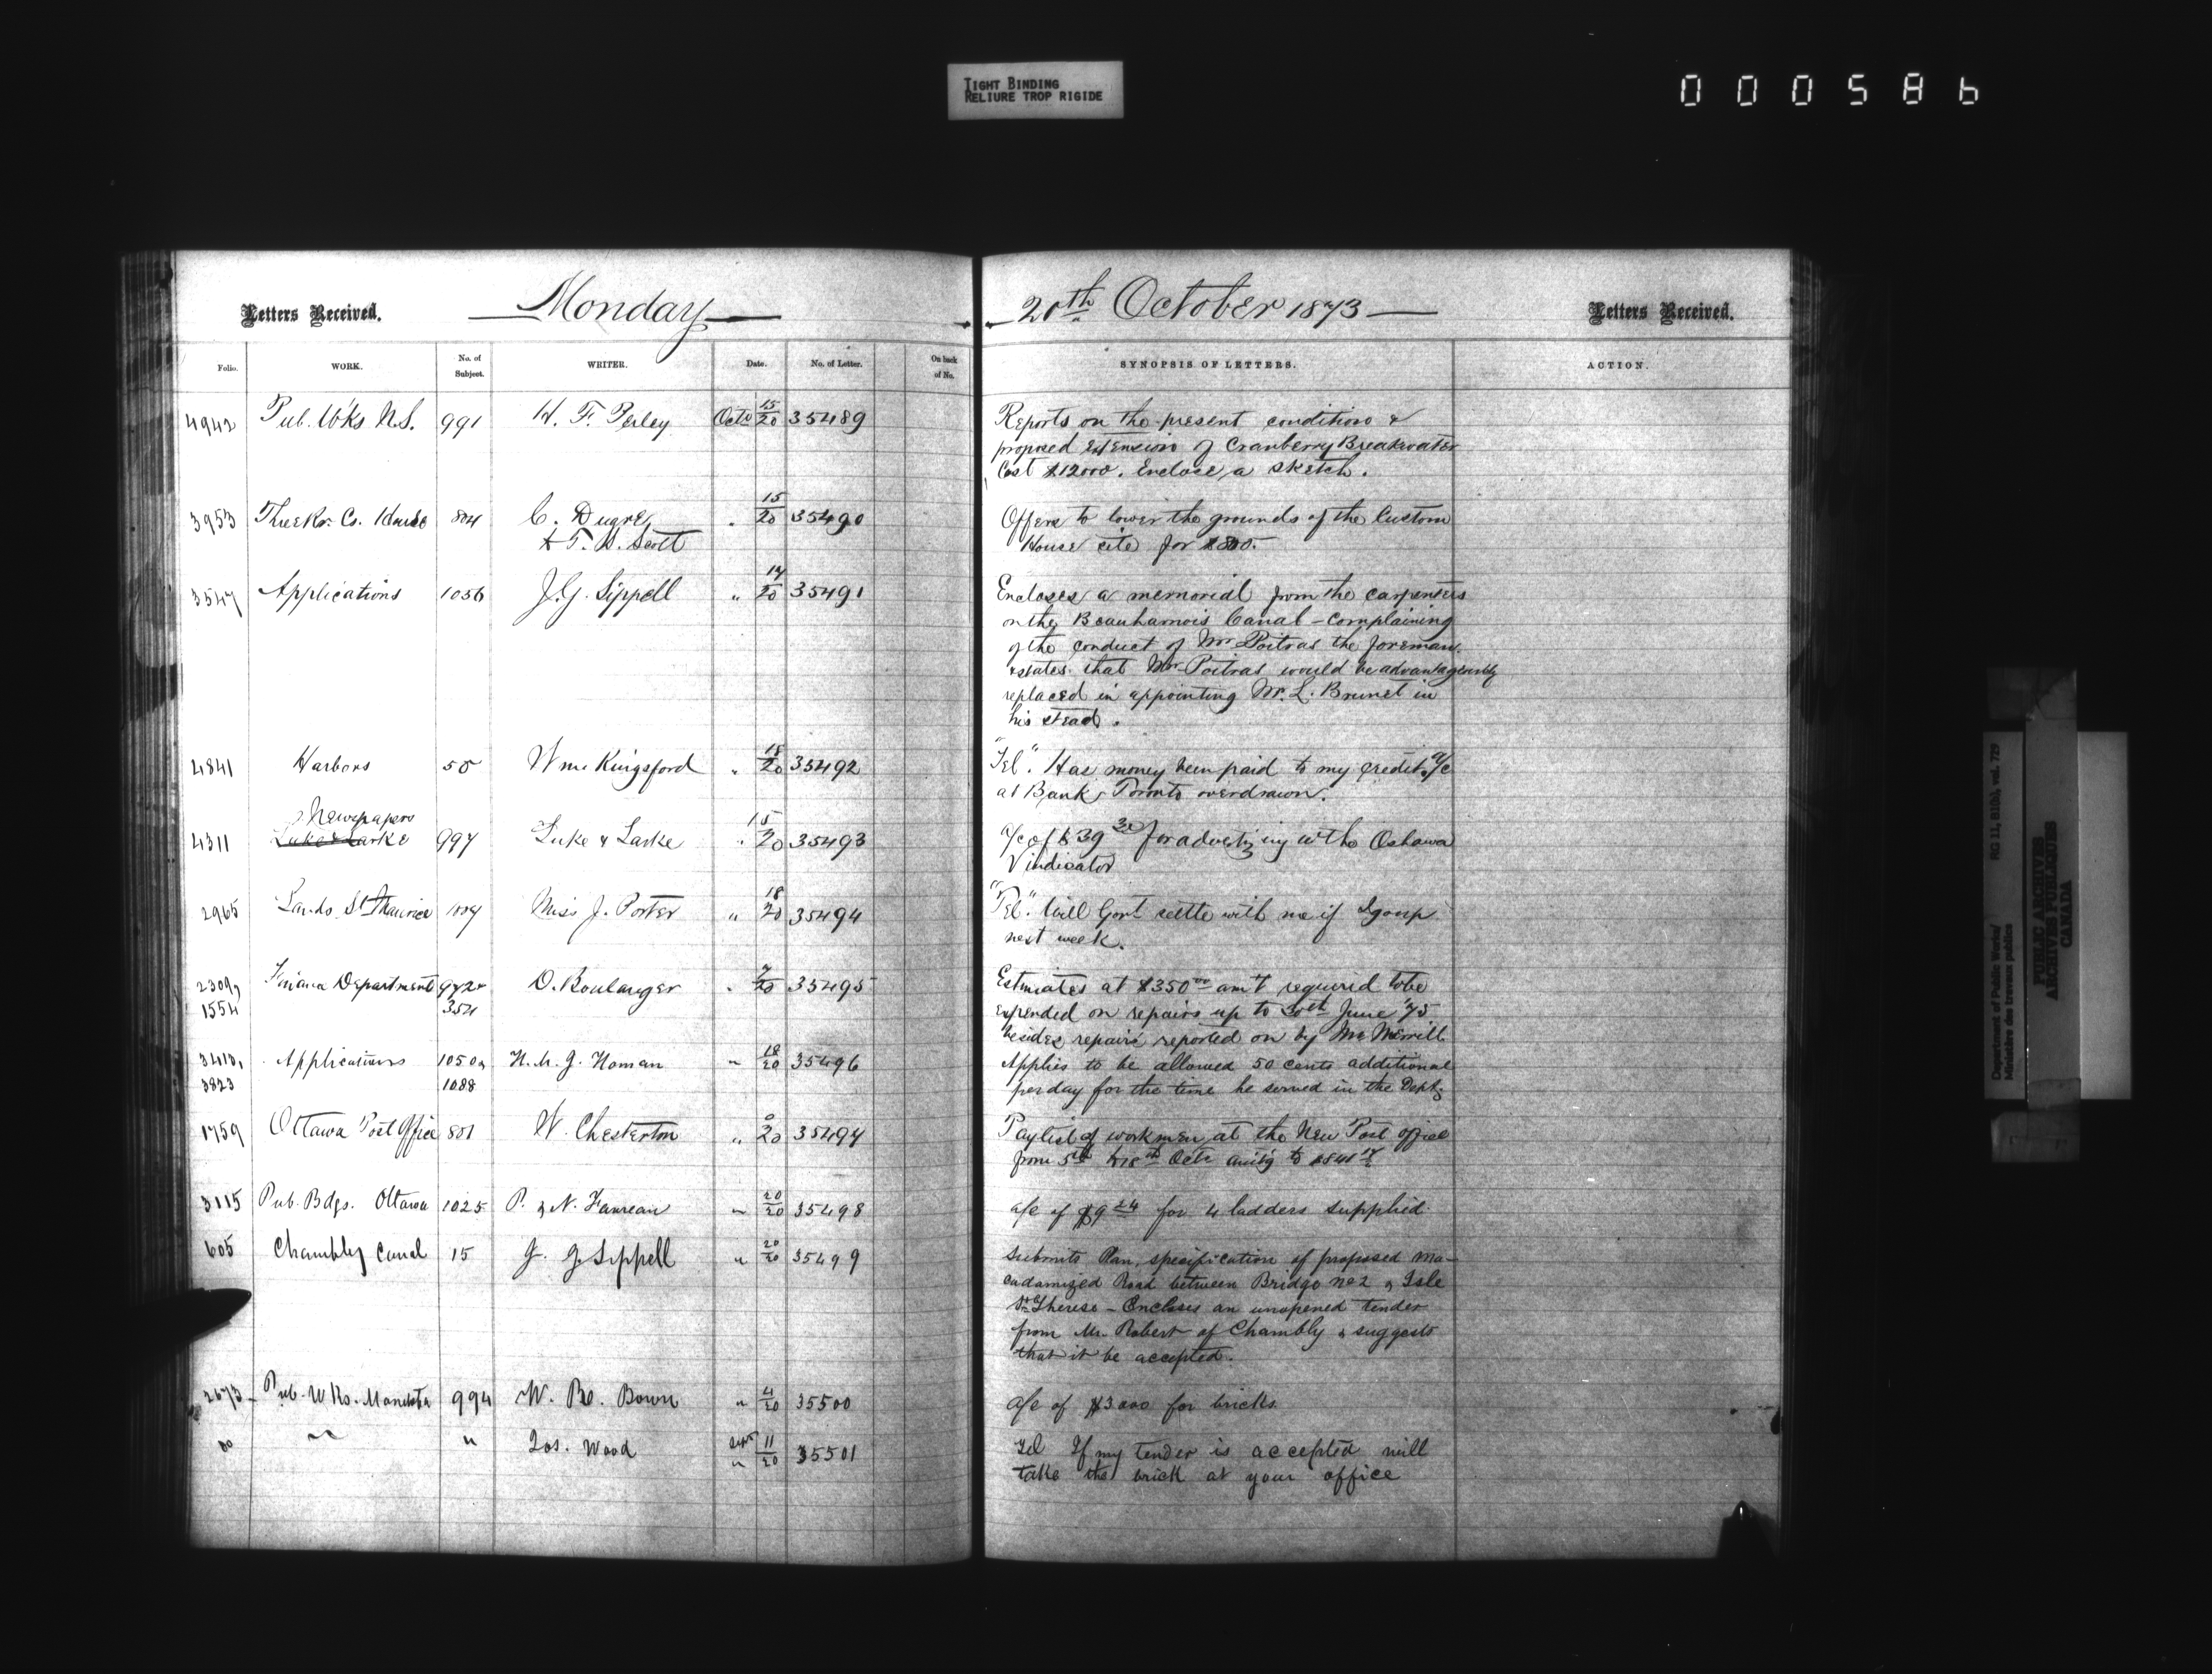 TIGHT BINDING
RELIURE TROP RIGIDE
000586
Letters Received. Monday 20th October 1873 Letters Received.
Folio. WORK. No. of Subject. WRITER. Date. No. of Letter. On back of No. SYNOPSIS OF LETTERS. ACTION.
4942 Pub. Wks N.S. 991 H. F. Perley Octr 15/20 35489 Reports on the present condition &
proposed extension of Cranberry Breakwater
Cost $12000. Enclose a sketch.
3953 Three Rs. Cs. House 804 C. Dugré 15/20 35490 Offers to lower the grounds of the Custom
& T. Scott House site for
3547 Applications 1056 J. G. Sippell " 17/20 35491 Encloses a memorial from the carpenters
on the Beauharnois Canal - Complaining
of the conduct of Mr Poitras the foreman
& states that Mr Poitras would be advantageously
replaced in appointing Mr. L. Brunet in
his stead.
4841 Harbors 50 Wm Kingsford " 18/20 35492 "Tel". Has money been paid to my credit a/c
at Bank Toronto overdrawn.
Newspapers
4311 Luke & Larke 997 Luke & Larke " 15/20 35493 a/c of $39 30 for advertizing with Oshawa
Vindicator
2965 Lands St Maurice Miss J. Porter " 18/20 35494 "Tel". Will Govt settle with me if I go up
next week.
2309, Finance Department 972 O. Boulanger " 7/20 35495 Estimates at $350 00 am't required to be
1554 354 expended on repairs up to 30th June '75
besides repairs reported on by Mr Merrill
3410, Applications 1050 & H. M. J. Homan " 18/20 35496 Applies to be allowed 50 cents additional
3823 1088 per day for the time he served in the Dept.
1759 Ottawa Post Office 801 W. Chesterton " 20 35497 Paylist of workmen at the New Post office
from 5th to 18th Octr am'tg to
3115 Pub. Bdgs. Ottawa 1025 P. & N. Favreau " 20/20 35498 a/c of $9 24 for 4 ladders supplied
605 Chambly Canal 15 J. G. Sippell " 20/20 35499 Submits Plan, specification of proposed ma-
cadamized Road between Bridge No 2 & Isle
St Therese - Encloses an unopened tender
from Mr. Robert of Chambly & suggests
that it be accepted.
2673 Pub. Wks. Manitoba 994 W. Bown " 4/20 35500 a/c of $3000 for bricks
do " " Jos. Wood Sept 11/20 35501 Tel If my tender is accepted will
take the brick at your office
Department of Public Works/
Ministère des travaux publics
RG 11, B1(b), vol. 729
PUBLIC ARCHIVES
ARCHIVES PUBLIQUES
CANADA